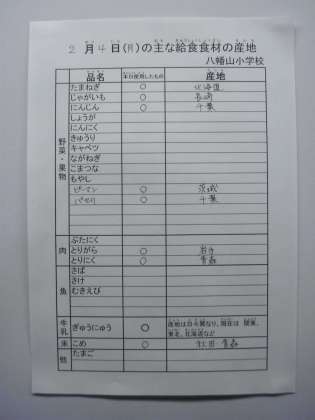 2月4日(月)の主な給食食材の産地
八幡山小学校
品名 本日使用したもの 産地
野菜・果物
たまねぎ ○ 北海道
じゃがいも ○ 長崎
にんじん ○ 千葉
しょうが
にんにく
きゅうり
キャベツ
ながねぎ
こまつな
もやし
ピーマン ○ 茨城
パセリ ○ 千葉
肉
ぶたにく
とりがら ○ 岩手
とりにく ○ 青森
魚
さば
さけ
むきえび
牛乳
ぎゅうにゅう ○ 産地は日々異なり、現在は 関東、
東北、北海道など
米 こめ ○ 秋田 青森
他 たまご